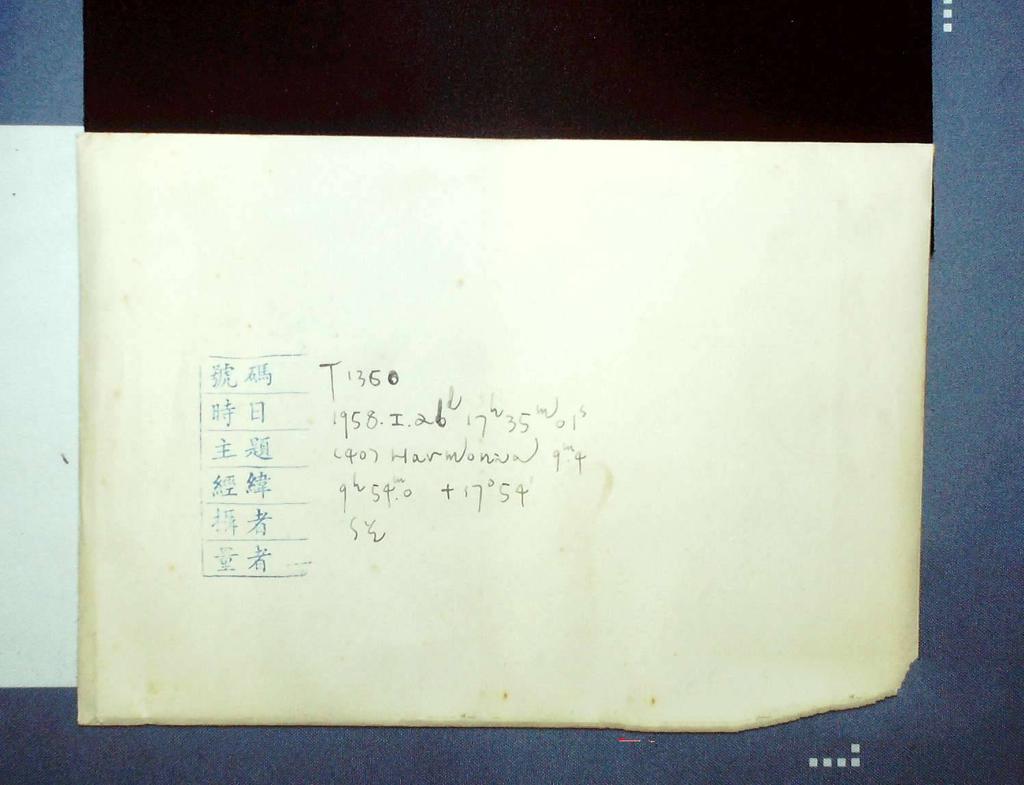 號碼 T1350
時日 1958.I.26ᵈ 17ʰ35ᵐ01ˢ
主題 (40) Harmonia 9ᵐ.4
經緯 9ʰ54ᵐ.0 +17°54'
攝者
量者